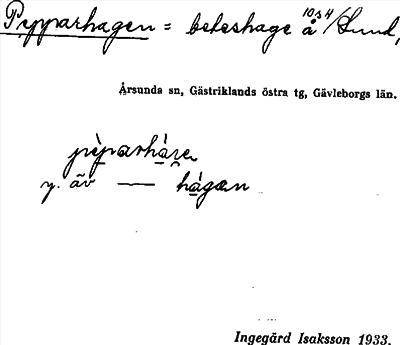 Pepparhagen = beteshage å 10s4/Sund,
Årsunda sn, Gästriklands östra tg, Gävleborgs län.
y. äv — hagan
Ingegärd Isaksson 1933.